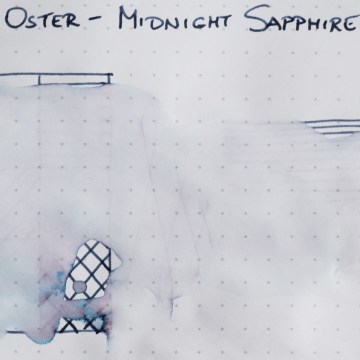 OSTER – MIDNIGHT SAPPHIRE